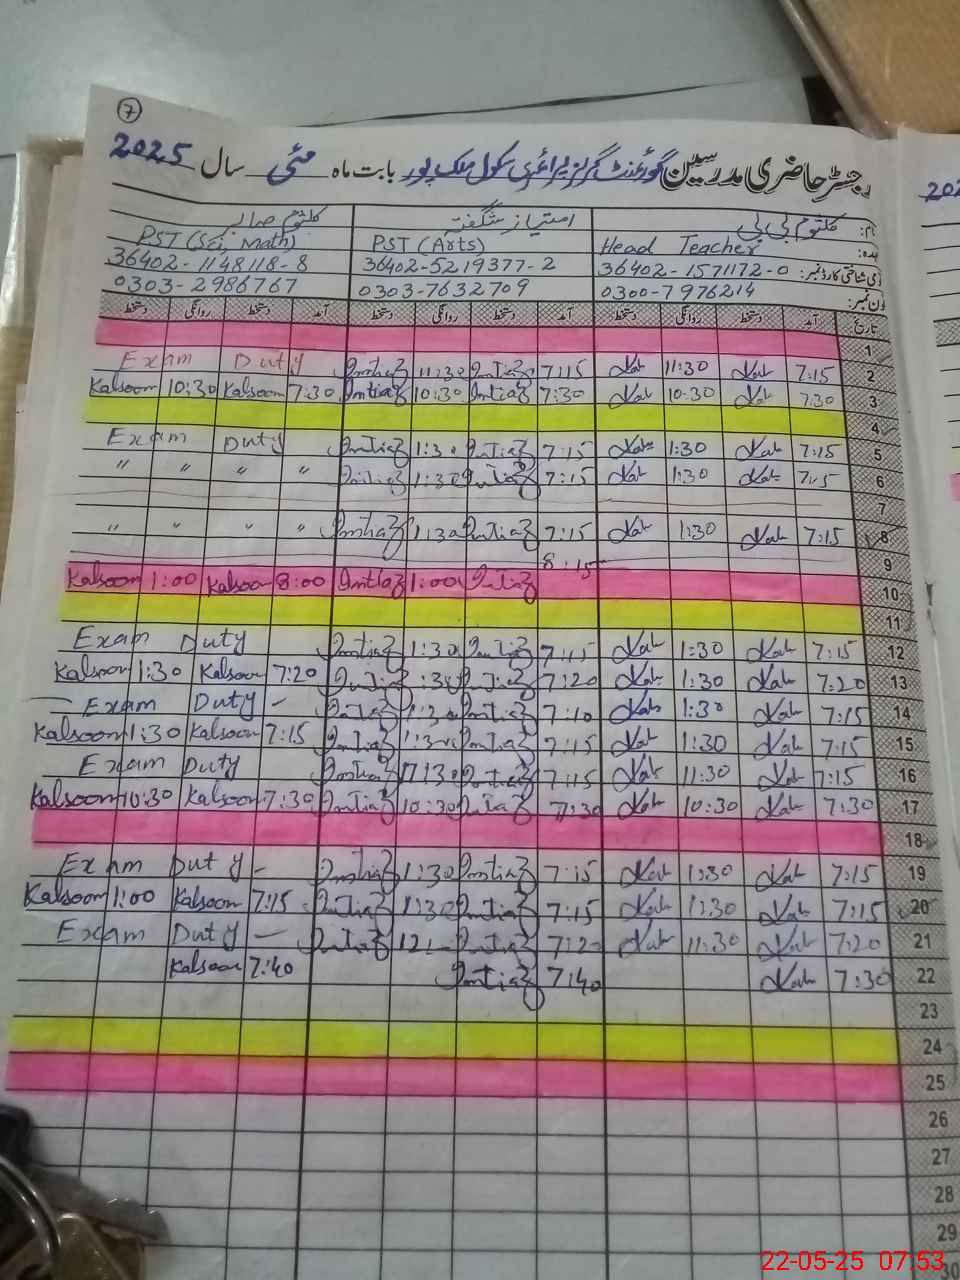 7
رجسٹر حاضری مدرسین گورنمنٹ گرلز پرائمری سکول ملک پور بابت ماہ مئی سال 2025
نام: کلثوم بی بی امتیاز شگفتہ کلثوم صابر
عہدہ: Head Teacher PST (Arts) PST (Sci, Math)
قومی شناختی کارڈ نمبر: 36402-1571172-0 36402-5219377-2 36402-1148118-8
فون نمبر: 0300-7976214 0303-7632709 0303-2986767
تاریخ آمد دستخط روانگی دستخط آمد دستخط روانگی دستخط آمد دستخط روانگی دستخط
1
Exam Duty Imtiaz 11:30 Imtiaz 7:15 11:30 7:15 2
Kalsoom 10:30 Kalsoom 7:30 Imtiaz 10:30 Imtiaz 7:30 10:30 7:30 3
4
Exam Duty Imtiaz 1:30 Imtiaz 7:15 1:30 7:15 5
" " " " Imtiaz 1:30 Imtiaz 7:15 1:30 7:15 6
7
" " " " Imtiaz 1:30 Imtiaz 7:15 1:30 7:15 8
9
Kalsoom 1:00 Kalsoom 8:00 Imtiaz 1:00 Imtiaz 8:15 10
11
Exam Duty Imtiaz 1:30 Imtiaz 7:15 1:30 7:15 12
Kalsoom 1:30 Kalsoom 7:20 Imtiaz 1:30 Imtiaz 7:20 1:30 7:20 13
Exam Duty - Imtiaz 1:30 Imtiaz 7:10 1:30 7:15 14
Kalsoom 1:30 Kalsoom 7:15 Imtiaz 1:30 Imtiaz 7:15 1:30 7:15 15
Exam Duty Imtiaz 11:30 Imtiaz 7:15 11:30 7:15 16
Kalsoom 10:30 Kalsoom 7:30 Imtiaz 10:30 Imtiaz 7:30 10:30 7:30 17
18
Exam Duty - Imtiaz 1:30 Imtiaz 7:15 1:30 7:15 19
Kalsoom 1:00 Kalsoom 7:15 Imtiaz 1:30 Imtiaz 7:15 11:30 7:15 20
Exam Duty - Imtiaz 12:- Imtiaz 7:20 11:30 7:20 21
Kalsoom 7:40 Imtiaz 7:40 7:30 22
23
24
25
26
27
28
29
30
22-05-25 07:53